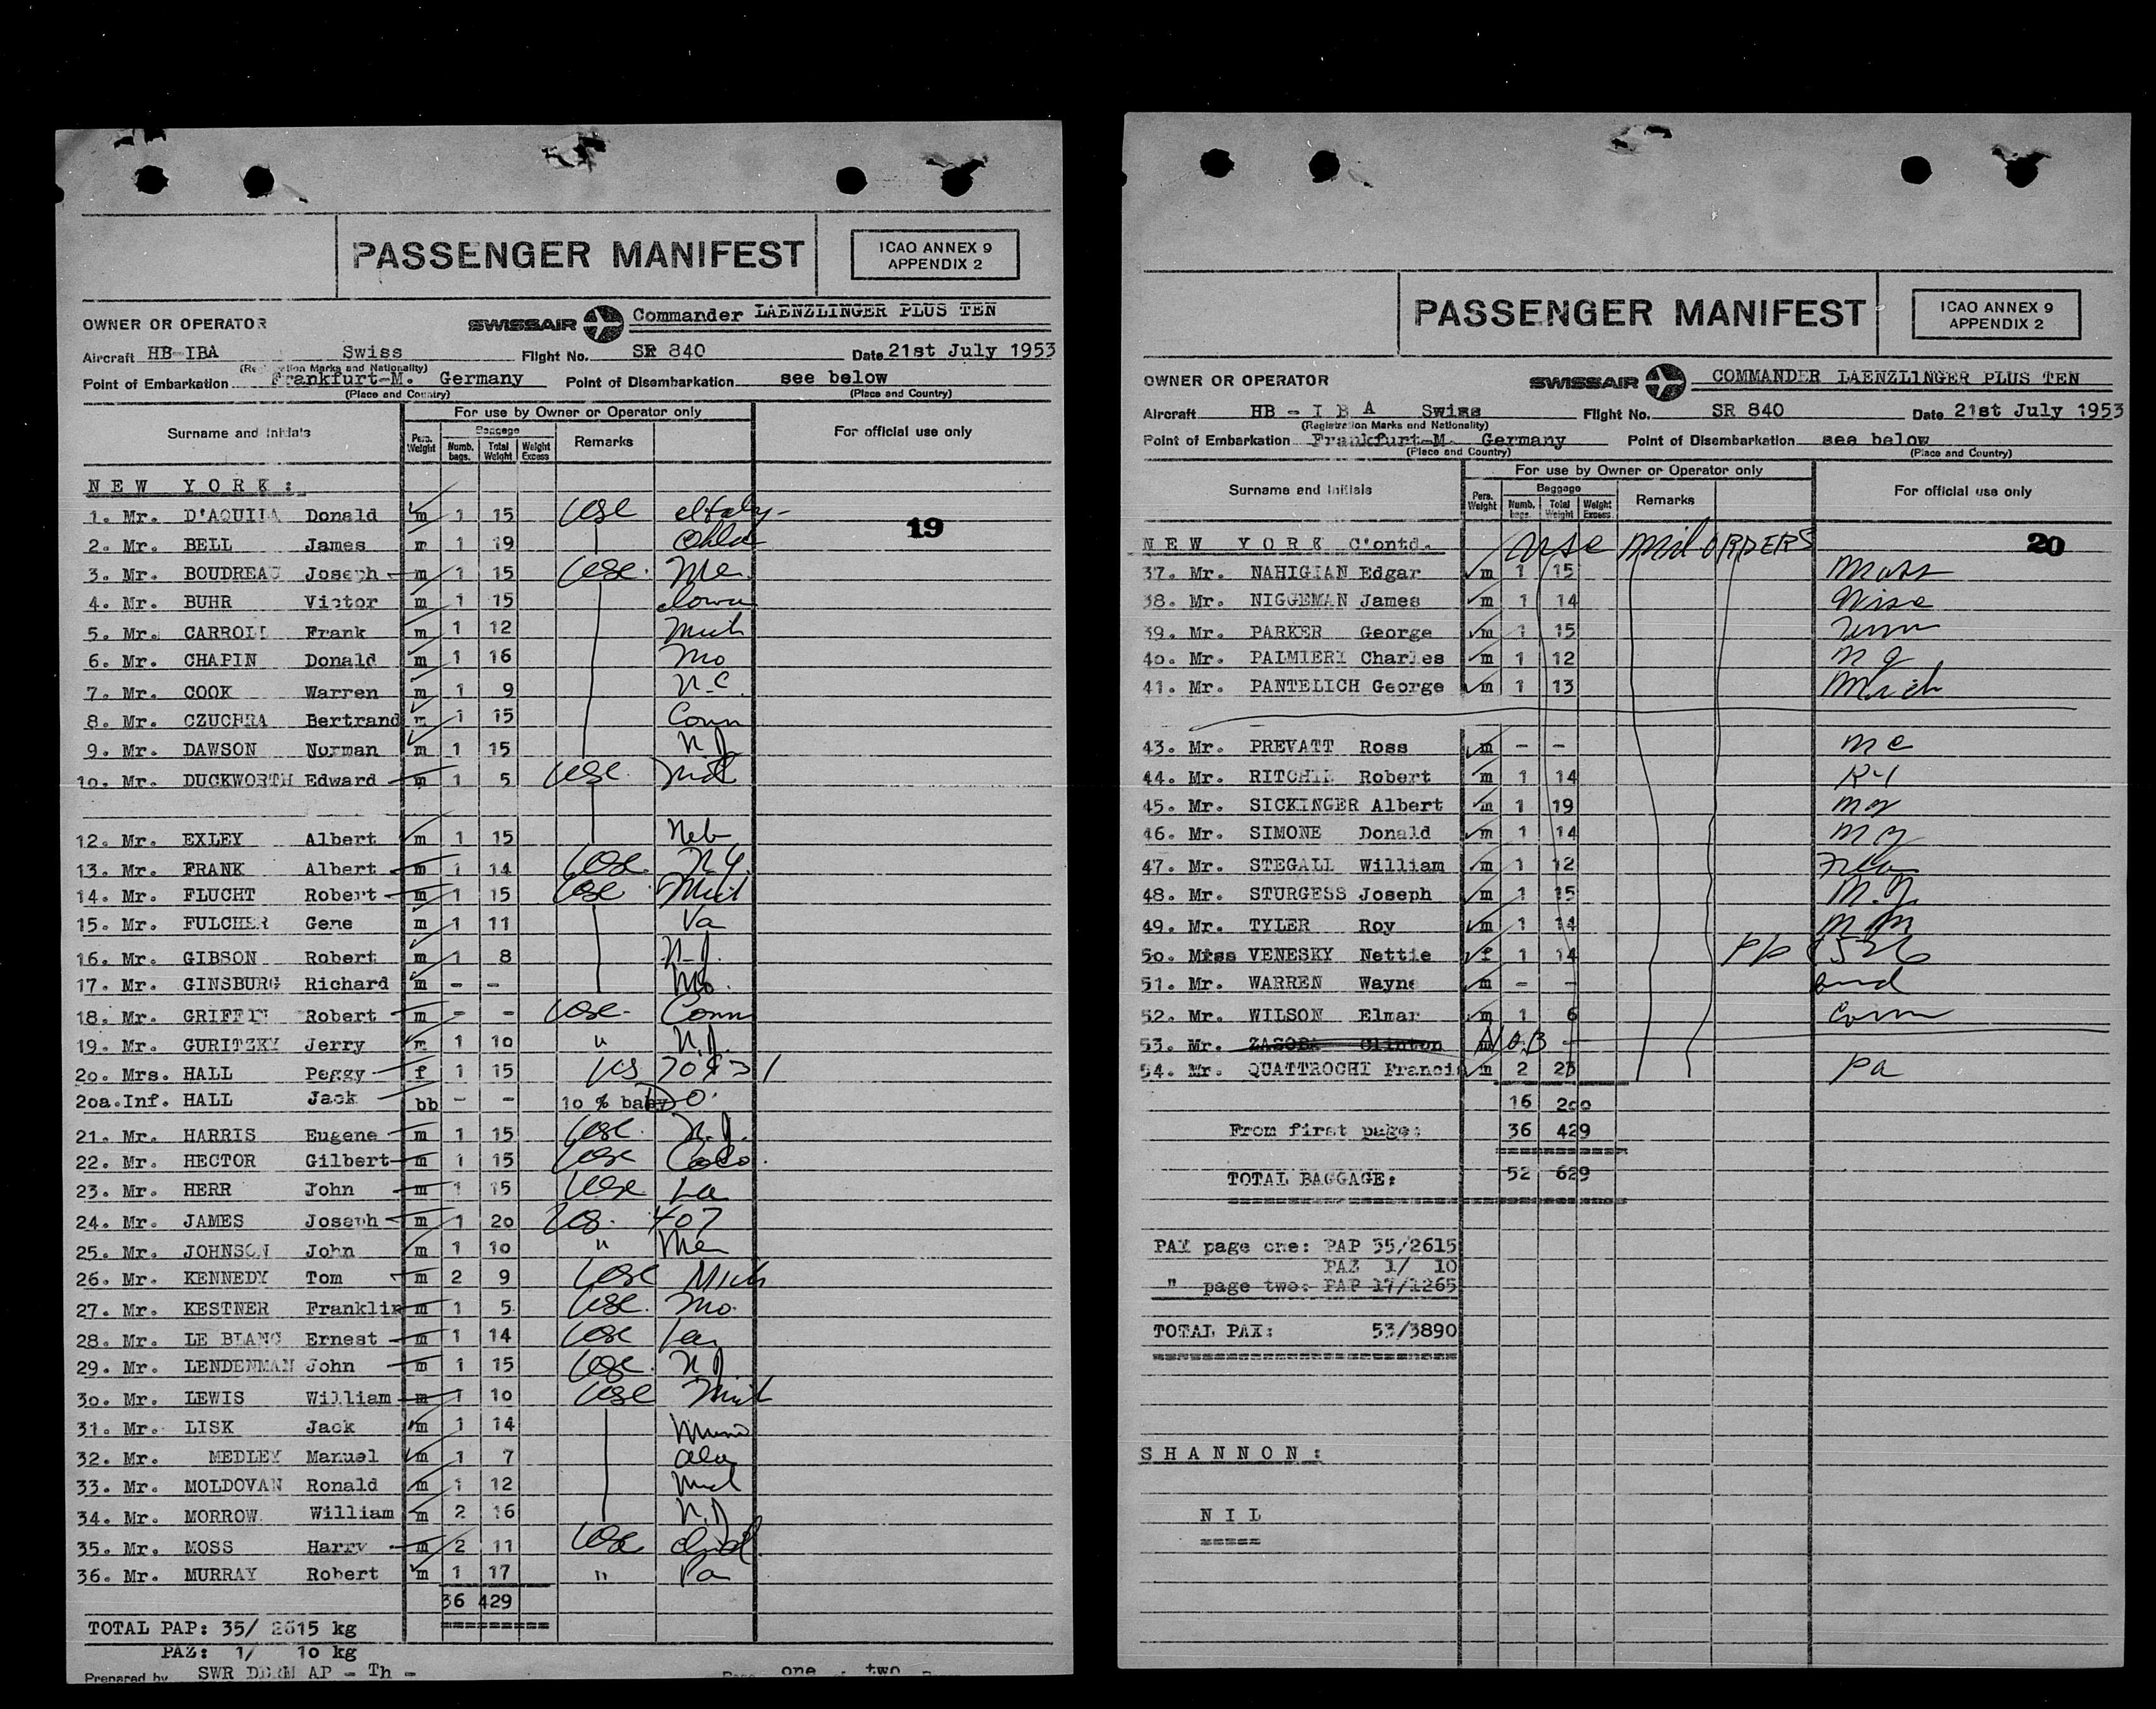 PASSENGER MANIFEST
ICAO ANNEX 9
APPENDIX 2
OWNER OR OPERATOR SWISSAIR Commander LAENZLINGER PLUS TEN
Aircraft HB-IBA Swiss Flight No. SR 840 Date 21st July 1953
(Registration Marks and Nationality)
Point of Embarkation Frankfurt-M. Germany Point of Disembarkation see below
(Place and Country) (Place and Country)
For use by Owner or Operator only
Surname and Initials Pers. Weight Baggage Numb. bags. Total Weight Weight Excess Remarks For official use only
NEW YORK:
19
1. Mr. D'AQUILA Donald m 1 15 USC
2. Mr. BELL James m 1 19 Ohio
3. Mr. BOUDREAU Joseph m 1 15 USC. Me.
4. Mr. BUHR Victor m 1 15 Iowa
5. Mr. CARROLL Frank m 1 12 Mich
6. Mr. CHAPIN Donald m 1 16 Mo
7. Mr. COOK Warren m 1 9 N.C.
8. Mr. CZUCHRA Bertrand m 1 15 Conn
9. Mr. DAWSON Norman m 1 15 N.J.
10. Mr. DUCKWORTH Edward m 1 5 USC.
12. Mr. EXLEY Albert m 1 15 Neb
13. Mr. FRANK Albert m 1 14 USC. N.Y.
14. Mr. FLUCHT Robert m 1 15 USC Mich
15. Mr. FULCHER Gene m 1 11 Va
16. Mr. GIBSON Robert m 1 8 N.J.
17. Mr. GINSBURG Richard m - - Mo.
18. Mr. GRIFFIN Robert m - - USC. Conn
19. Mr. GURITZKY Jerry m 1 10 " N.J.
20. Mrs. HALL Peggy f 1 15 US
20a.Inf. HALL Jack bb - - 10 % baby Do.
21. Mr. HARRIS Eugene m 1 15 USC. N.J.
22. Mr. HECTOR Gilbert m 1 15 USC Colo.
23. Mr. HERR John m 1 15 USC La
24. Mr. JAMES Joseph m 1 20 407
25. Mr. JOHNSON John m 1 10 "
26. Mr. KENNEDY Tom m 2 9 USC Mich
27. Mr. KESTNER Franklin m 1 5 USC. Mo.
28. Mr. LE BLANC Ernest m 1 14 USC
29. Mr. LENDENMAN John m 1 15 USC. N.J
30. Mr. LEWIS William m 1 10 USC Mich
31. Mr. LISK Jack m 1 14
32. Mr. MEDLEY Manuel m 1 7 Ala
33. Mr. MOLDOVAN Ronald m 1 12
34. Mr. MORROW William m 2 16 N.J
35. Mr. MOSS Harry m 2 11 USC Ind.
36. Mr. MURRAY Robert m 1 17 " Pa
36 429
=========
TOTAL PAP: 35/ 2615 kg
PAZ: 1/ 10 kg
Prepared by SWR DDRM AP - Th - one two
PASSENGER MANIFEST
ICAO ANNEX 9
APPENDIX 2
OWNER OR OPERATOR SWISSAIR COMMANDER LAENZLINGER PLUS TEN
Aircraft HB - I B A Swiss Flight No. SR 840 Date 21st July 1953
(Registration Marks and Nationality)
Point of Embarkation Frankfurt-M. Germany Point of Disembarkation see below
(Place and Country) (Place and Country)
For use by Owner or Operator only
Surname and Initials Pers. Weight Baggage Numb. bags. Total Weight Weight Excess Remarks For official use only
NEW YORK C'ontd. USC Mil ORDERS
20
37. Mr. NAHIGIAN Edgar m 1 15 Mass
38. Mr. NIGGEMAN James m 1 14 Wisc
39. Mr. PARKER George m 1 15
40. Mr. PALMIERI Charles m 1 12
41. Mr. PANTELICH George m 1 13 Mich
43. Mr. PREVATT Ross m - -
44. Mr. RITCHIE Robert m 1 14
45. Mr. SICKINGER Albert m 1 19
46. Mr. SIMONE Donald m 1 14
47. Mr. STEGALL William m 1 12
48. Mr. STURGESS Joseph m 1 15
49. Mr. TYLER Roy m 1 14
50. Miss VENESKY Nettie f 1 14 PP
51. Mr. WARREN Wayne m - - Ind
52. Mr. WILSON Elmar m 1 6 Conn
53. Mr. ZASOBA Clinton m NOB -
54. Mr. QUATTROCHI Francis m 2 23 Pa
16 200
From first page: 36 429
TOTAL BAGGAGE: 52 629
PAX page one: PAP 35/2615
PAZ 1/ 10
" page two: PAP 17/1265
TOTAL PAX: 53/3890
SHANNON:
NIL
=====